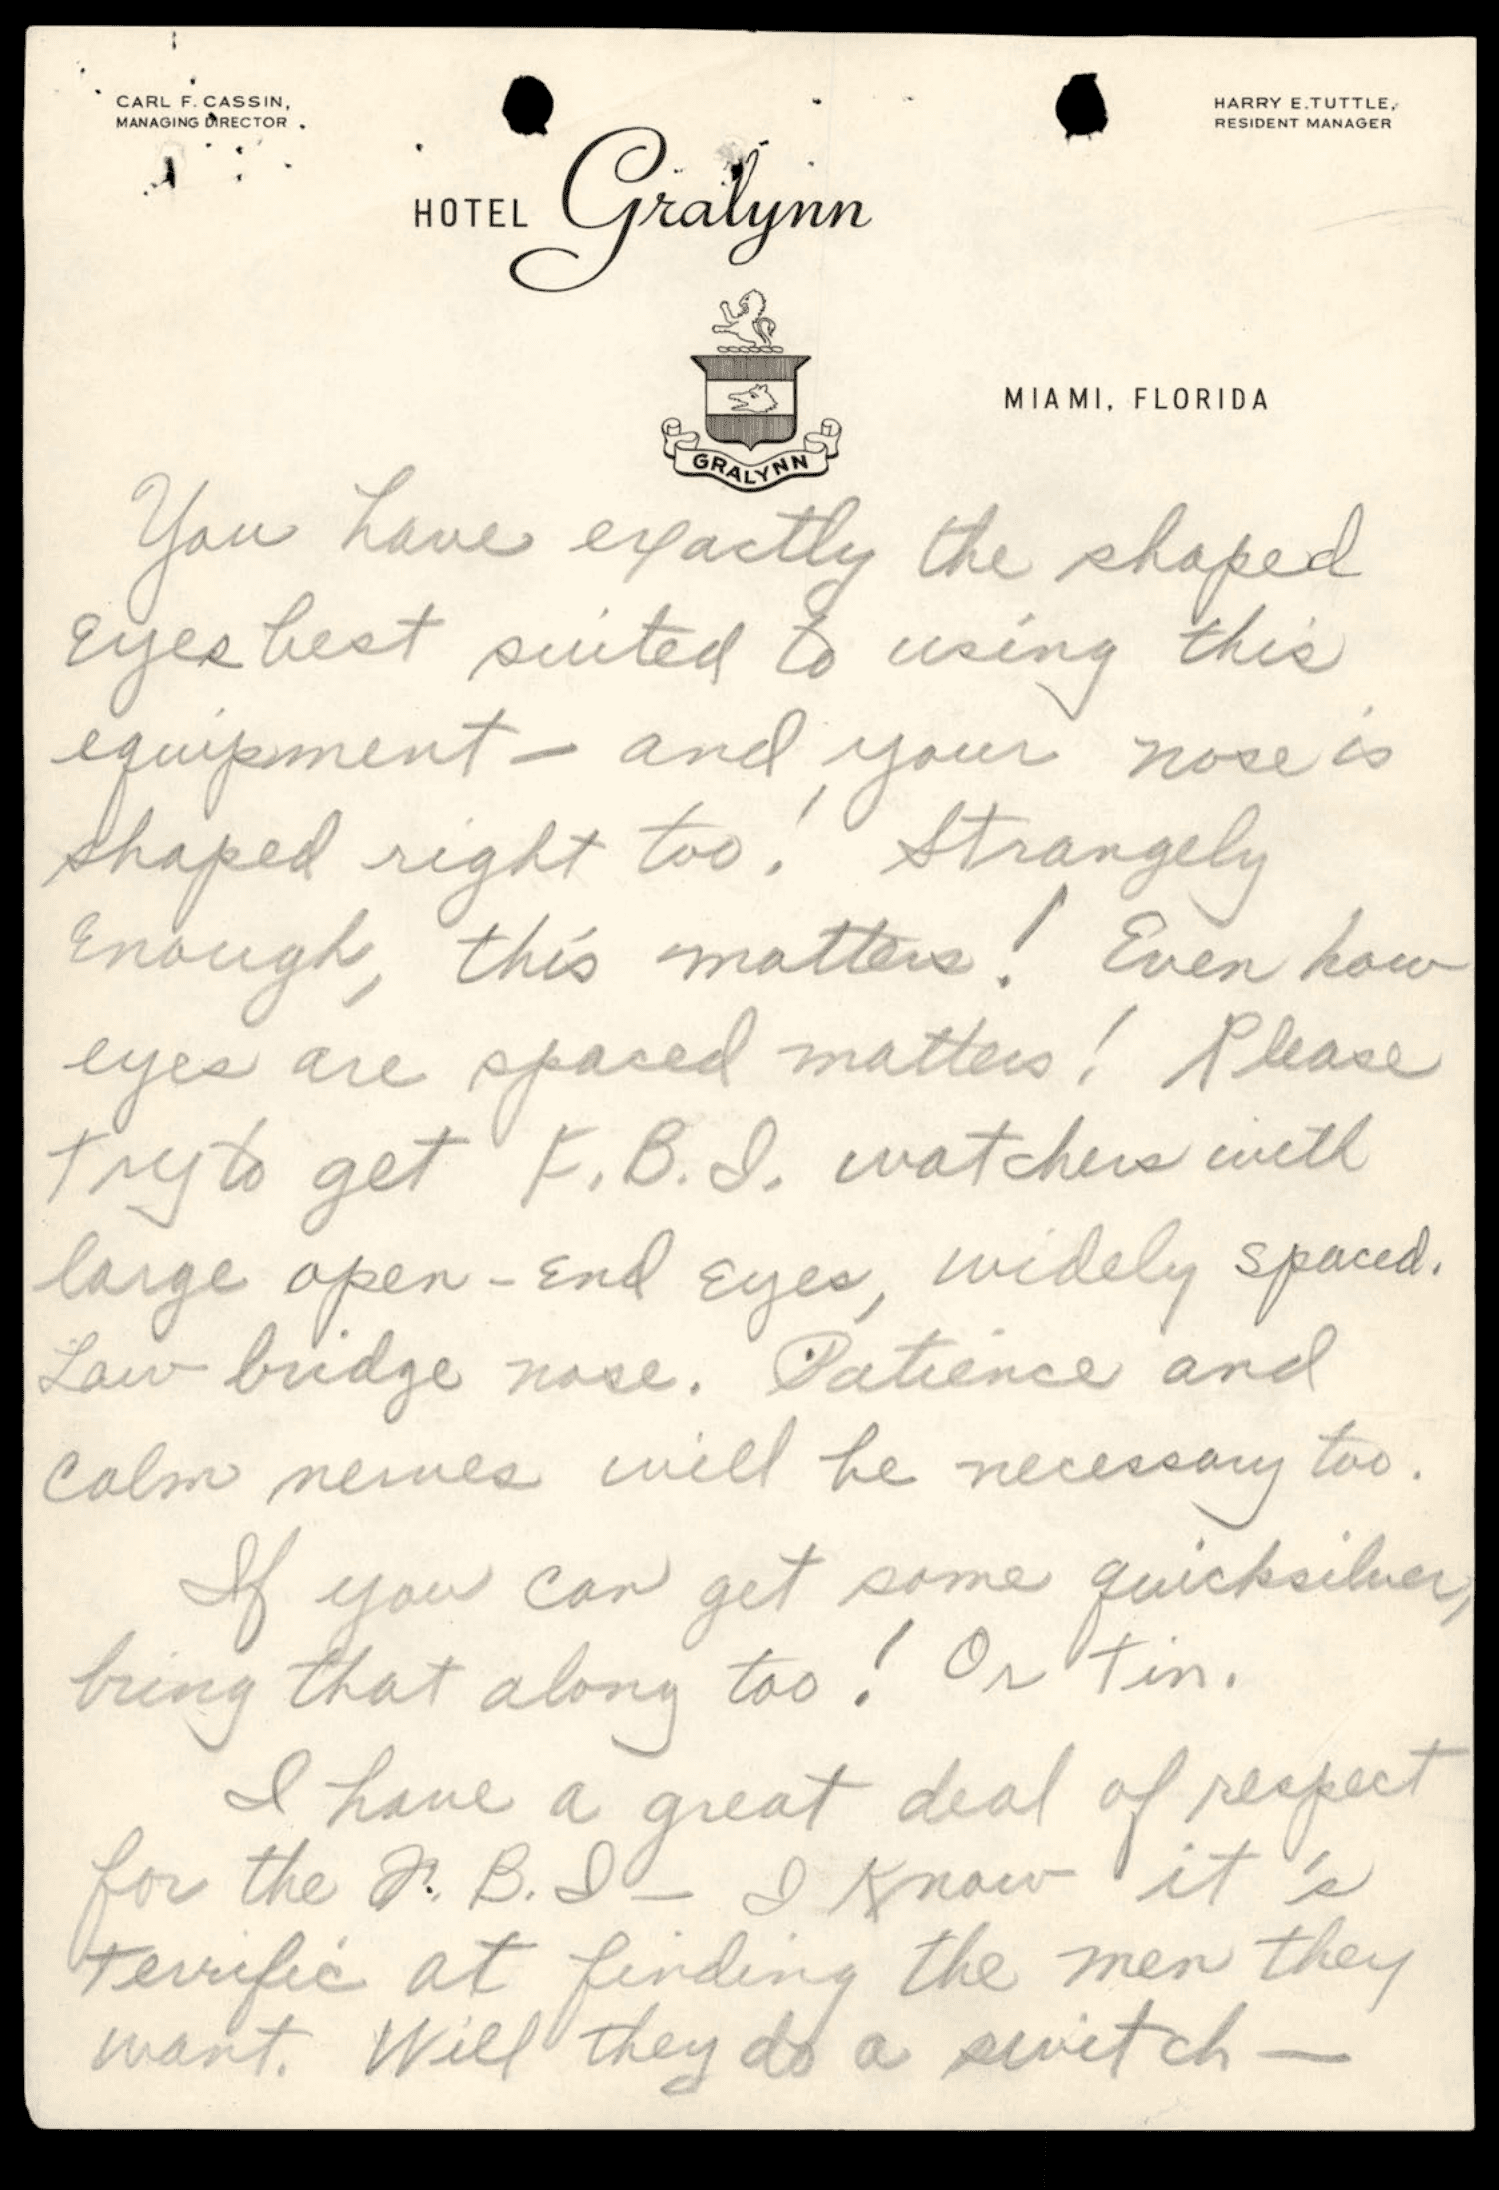 CARL F. CASSIN,
MANAGING DIRECTOR
HARRY E. TUTTLE,
RESIDENT MANAGER
HOTEL Gralynn
MIAMI, FLORIDA
GRALYNN
You have exactly the shaped
Eyes best suited to using this
equipment — and your nose is
shaped right too! Strangely
Enough, this matters! Even how
eyes are spaced matters! Please
try to get F.B.I. watchers with
large open-End Eyes, widely spaced.
Low bridge nose. Patience and
calm nerves will be necessary too.
If you can get some quicksilver,
bring that along too! Or tin.
I have a great deal of respect
for the F.B.I — I know it's
terrific at finding the men they
want. Will they do a switch —